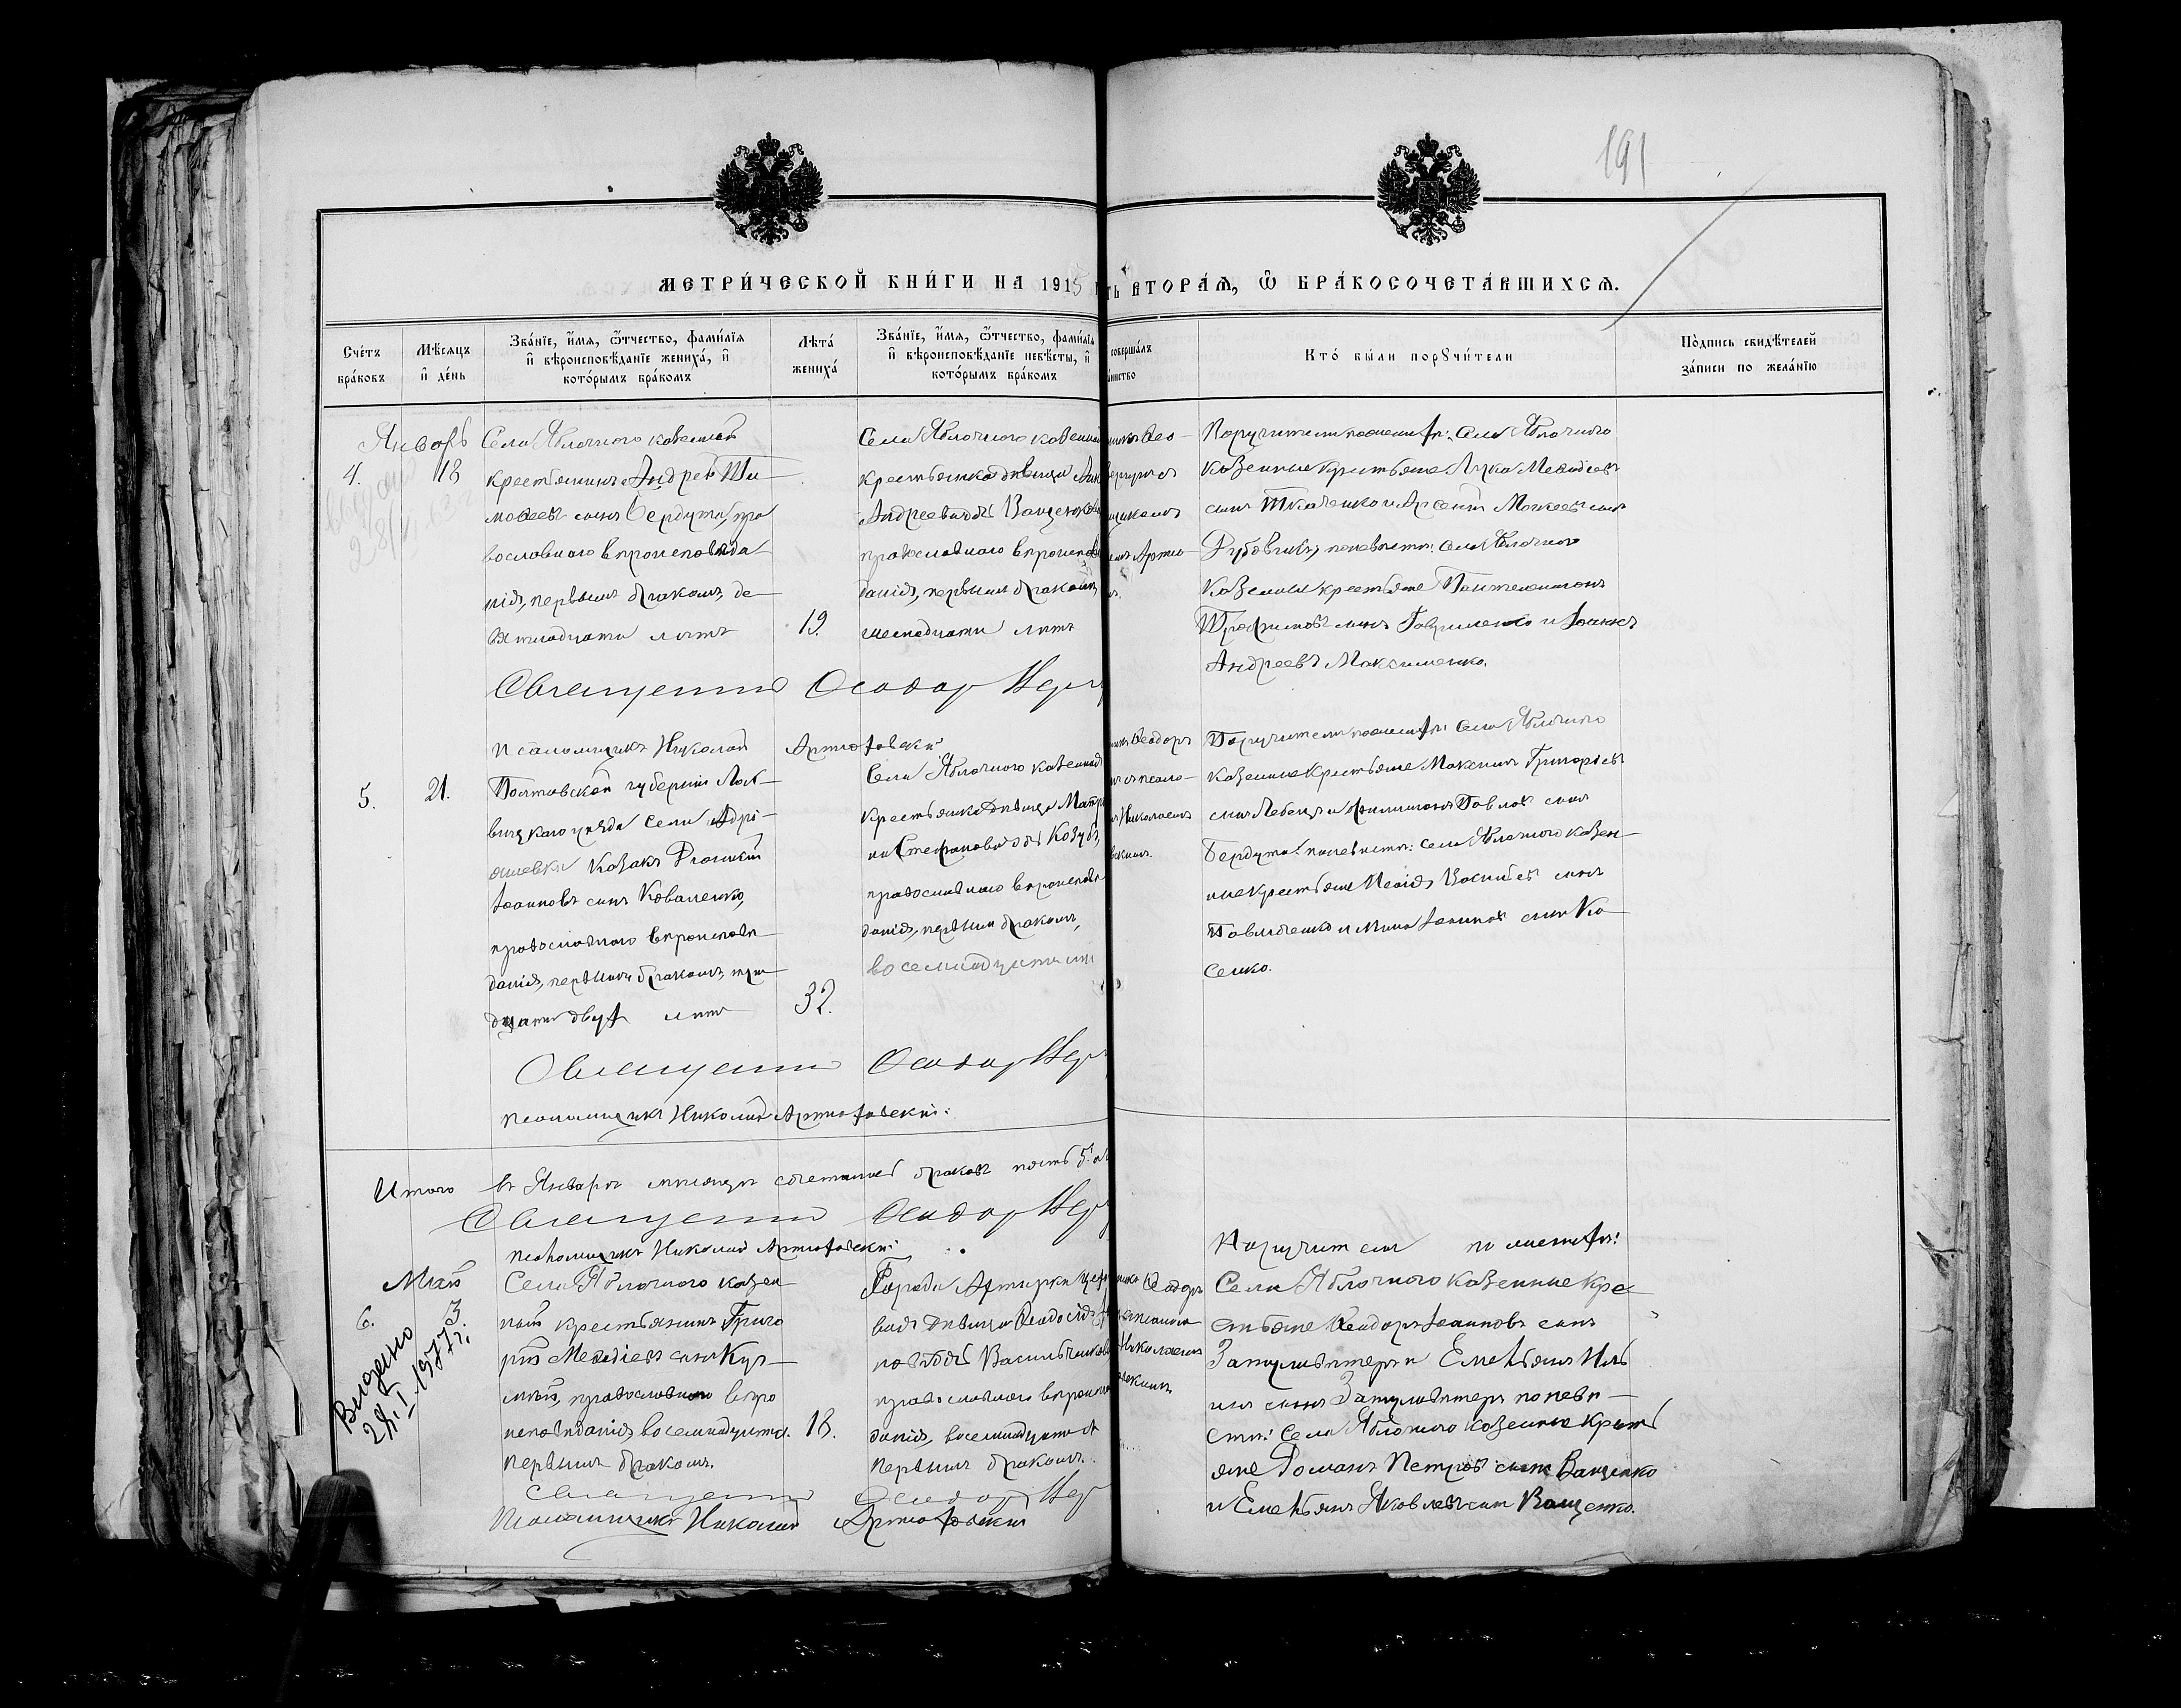 191
МЕТРИ́ЧЕСКОЙ КНИ́ГИ НА 1915
ТЬ ВТОРА́Я, Ѿ БРА́КОСОЧЕТА́ВШИХСЯ.
Сче́тъ бра́ковъ
Мѣ́сяцъ и҆ де́нь
Зва́нїе, и҆́мя, ѻ҆́тчество, фами́лїя
и҆ вѣроисповѣ́данїе жениха̀, и҆
кото́рымъ бра́комъ
Лѣта̀ жениха̀
Зва́нїе, и҆́мя, ѻ҆́тчество, фами́лїя
и҆ вѣроисповѣ́данїе невѣ́сты, и҆
кото́рымъ бра́комъ
соверша́лъ
Кто̀ бы́ли порꙋчи́тели
По́дпись свидѣ́телей
за́писи по жела́нїю
Январь
4.
18
Села Яблочного казенный
крестьянинъ Андрей Ти-
мовеевъ сынъ Бердута, пра
вославного вѣроисповѣда
нія, первымъ бракомъ, де
вятнадцати лѣтъ
19.
Села Яблочного казенная
крестьянка дѣвица
Андреева дочь Ващенкова
православного вѣроисповѣ
данія, первымъ бракомъ,
шеснадцати лѣтъ
Поручители по женихѣ: Села Яблочного
казенные крестьяне Лука Меѳодіевъ
сынъ Ткаченко и Арсеній Мокеевъ сынъ
по невѣстѣ: села Яблочного
казенные крестьяне Пантелеимонъ
Трофимовъ сынъ Гавриленко и Іоаннъ
Андреевъ Максименко.
Священникъ Ѳеодоръ
Псаломщикъ Николай Артюховскій
5.
21.
Полтавской губерніи Лох-
вицкаго уѣзда села Адрі-
яшевки казакъ
Іоанновъ сынъ Коваленко,
православного вѣроисповѣ
данія, первымъ бракомъ, три
дцати двухъ лѣтъ
32.
Села Яблочного казенная
крестьянка дѣвица
на Стефанова дочь Козубъ,
православного вѣроисповѣ
данія, первымъ бракомъ,
восемнадцати лѣ
Поручители по женихѣ: села Яблочного
казенные крестьяне Максимъ Григорьевъ
сынъ Лебедь и Филимонъ Павловъ сынъ
Бердута: по невѣстѣ: села Яблочного казен-
ные крестьяне Исаія сынъ
Павлюченко и Мина Іоанновъ сынъ Ко
сенко.
Священникъ Ѳеодоръ
Псаломщикъ Николай Артюховскій:
Итого въ Январѣ мѣсяцѣ сочеталось браковъ пять 5.
Священникъ Ѳеодоръ
Псаломщикъ Николай Артюховскій
Май
6.
3.
Видано
28.I.1977 г.
Села Яблочного казен
ный крестьянинъ Григо
рій Меѳодіевъ сынъ
православного вѣро
исповѣданія, восемнадцати л.
первымъ бракомъ.
18.
Города Ахтырки
вая дѣвица Ѳеодосія
нова дочь Васильченкова
православного вѣроиспо
данія, восемнадцати л
первымъ бракомъ.
Поручители по женихѣ:
Села Яблочного казенные кре
стьяне Ѳеодоръ Іоанновъ сынъ
Затуливѣтеръ и Емельянъ Иль
инъ сынъ Затуливѣтеръ по невѣ-
стѣ: Села Яблочного казенные кресть
яне Романъ Петровъ сынъ Ващенко
и Емельянъ Яковлевъ сынъ Ващенко.
Священникъ Ѳеодоръ
Псаломщикъ Николай Артюховскій